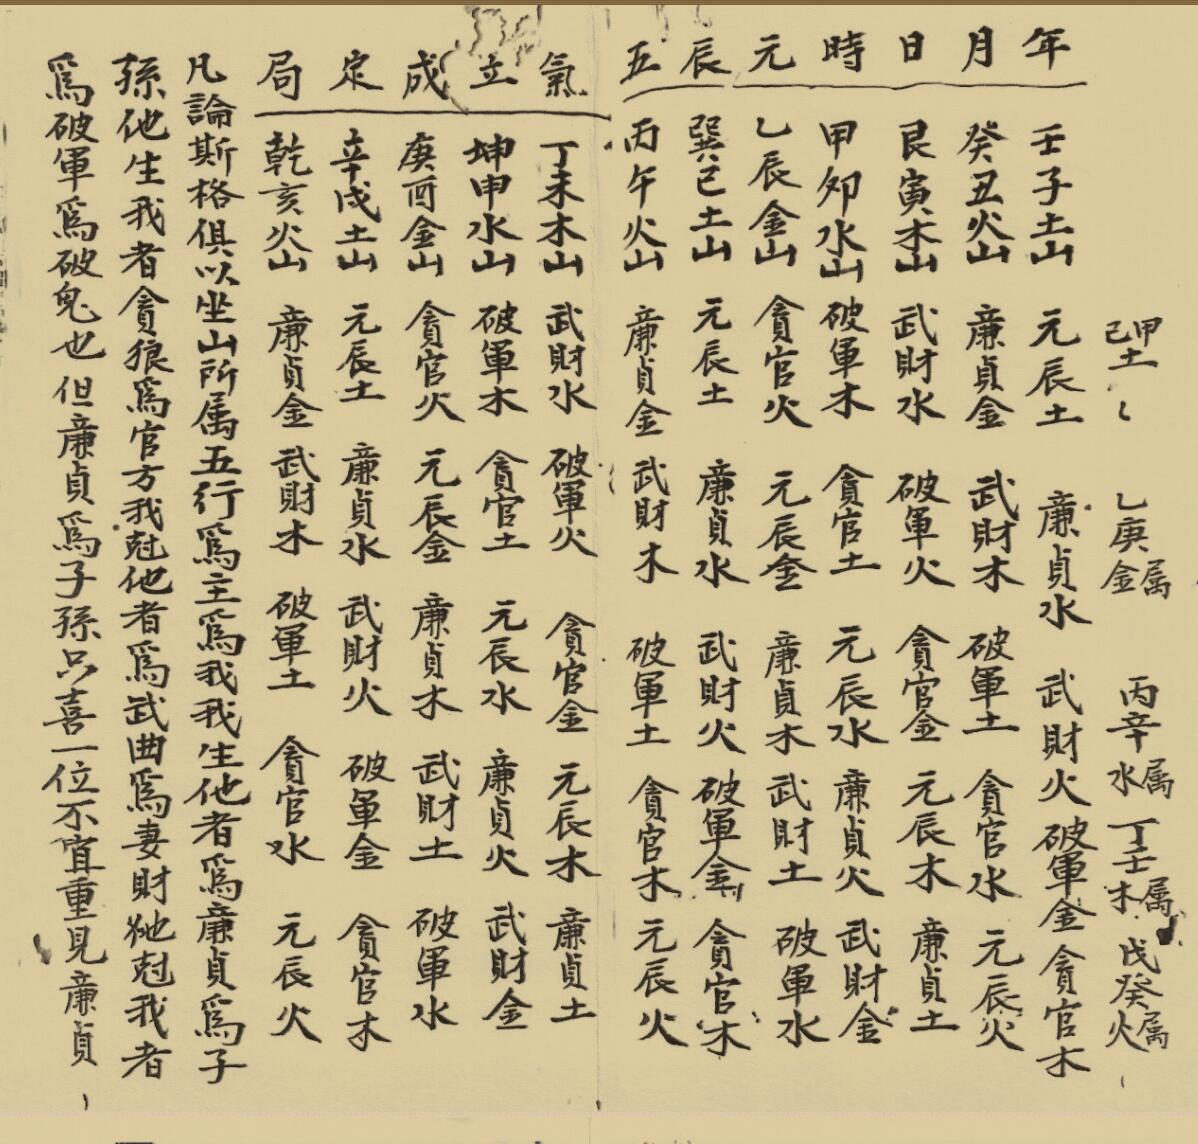 年月日時元辰五氣立成定局
甲己土 乙庚属金 丙辛属水 丁壬属木 戊癸属火
壬子土山 元辰土 廉貞水 武財火 破軍金 貪官木
癸丑火山 廉貞金 武財木 破軍土 貪官水 元辰火
艮寅木山 武財水 破軍火 貪官金 元辰木 廉貞土
甲卯水山 破軍木 貪官土 元辰水 廉貞火 武財金
乙辰金山 貪官火 元辰金 廉貞木 武財土 破軍水
巽巳土山 元辰土 廉貞水 武財火 破軍金 貪官木
丙午火山 廉貞金 武財木 破軍土 貪官木 元辰火
丁未木山 武財水 破軍火 貪官金 元辰木 廉貞土
坤申水山 破軍木 貪官土 元辰水 廉貞火 武財金
庚酉金山 貪官火 元辰金 廉貞木 武財土 破軍水
辛戌土山 元辰土 廉貞水 武財火 破軍金 貪官木
乾亥火山 廉貞金 武財木 破軍土 貪官水 元辰火
凡論斯格俱以坐山所属五行爲主爲我我生他者爲廉貞爲子
孫他生我者貪狼爲官方我尅他者爲武曲爲妻財他尅我者
爲破軍爲破鬼也但廉貞爲子孫只喜一位不宜重見廉貞